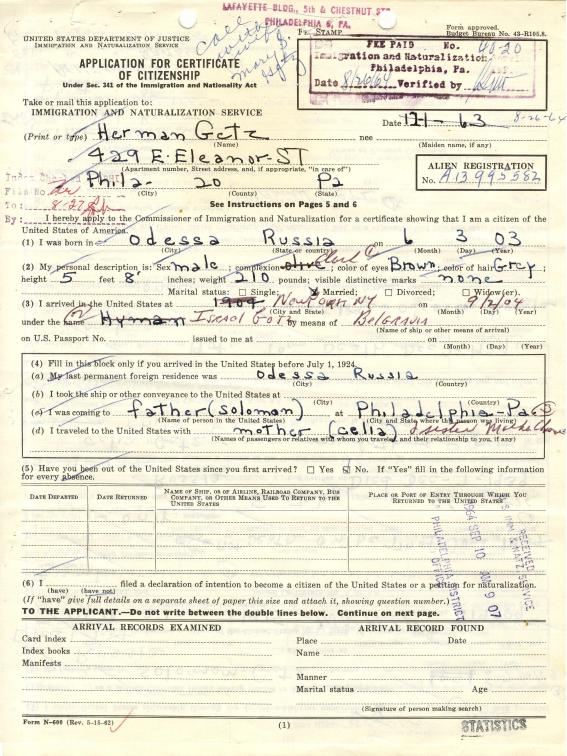 LAFAYETTE BLDG., 5th & CHESTNUT ST
PHILADELPHIA 6, PA.
Form approved.
Budget Bureau No. 43-R105.8.
UNITED STATES DEPARTMENT OF JUSTICE
IMMIGRATION AND NATURALIZATION SERVICE
Call
Fee Stamp
APPLICATION FOR CERTIFICATE
OF CITIZENSHIP
Under Sec. 341 of the Immigration and Nationality Act
FEE PAID No. 4020
Immigration and Naturalization
Philadelphia, Pa.
Date 8/26/64 Verified by
Take or mail this application to:
IMMIGRATION AND NATURALIZATION SERVICE
Date 63 8-26-64
(Print or type) Herman Getz nee
(Name) (Maiden name, if any)
429 E. Eleanor - ST
(Apartment number, Street address, and, if appropriate, "in care of")
Phila - 20 Pa
(City) (County) (State)
ALIEN REGISTRATION
No. A13 995 582
File No.
To: 8-27
By:
See Instructions on Pages 5 and 6
I hereby apply to the Commissioner of Immigration and Naturalization for a certificate showing that I am a citizen of the
United States of America.
(1) I was born in Odessa Russia on 6 3 03
(City) (State or country) (Month) (Day) (Year)
(2) My personal description is: Sex male; complexion olive; color of eyes Brown; color of hair Grey;
height 5 feet 8 inches; weight 210 pounds; visible distinctive marks none
Marital status: Single; Married; Divorced; Widow(er).
(3) I arrived in the United States at 1904 New York NY on 9/2/04
(City and State) (Month) (Day) (Year)
under the name Hyman Israel Gotz by means of Belgravia
(Name of ship or other means of arrival)
on U.S. Passport No. issued to me at on
(Month) (Day) (Year)
(4) Fill in this block only if you arrived in the United States before July 1, 1924.
(a) My last permanent foreign residence was Odessa Russia
(City) (Country)
(b) I took the ship or other conveyance to the United States at
(City) (Country)
(c) I was coming to father (Solomon) at Philadelphia - Pa
(Name of person in the United States) (City and State where this person was living)
(d) I traveled to the United States with mother (Celia) & sister
(Names of passengers or relatives with whom you traveled, and their relationship to you, if any)
(5) Have you been out of the United States since you first arrived? Yes No. If "Yes" fill in the following information
for every absence.
DATE DEPARTED
DATE RETURNED
NAME OF SHIP, OR OF AIRLINE, RAILROAD COMPANY, BUS
COMPANY, OR OTHER MEANS USED TO RETURN TO THE
UNITED STATES
PLACE OR PORT OF ENTRY THROUGH WHICH YOU
RETURNED TO THE UNITED STATES
RECEIVED
IMM. & NATZ. SERVICE
1964 SEP 10 AM 9 07
PHILADELPHIA DISTRICT
OFFICE
(6) I filed a declaration of intention to become a citizen of the United States or a petition for naturalization.
(have) (have not)
(If "have" give full details on a separate sheet of paper this size and attach it, showing question number.)
TO THE APPLICANT.—Do not write between the double lines below. Continue on next page.
ARRIVAL RECORDS EXAMINED
ARRIVAL RECORD FOUND
Card index
Place Date
Index books
Name
Manifests
Manner
Marital status Age
(Signature of person making search)
Form N-600 (Rev. 5-15-62)
(1)
STATISTICS